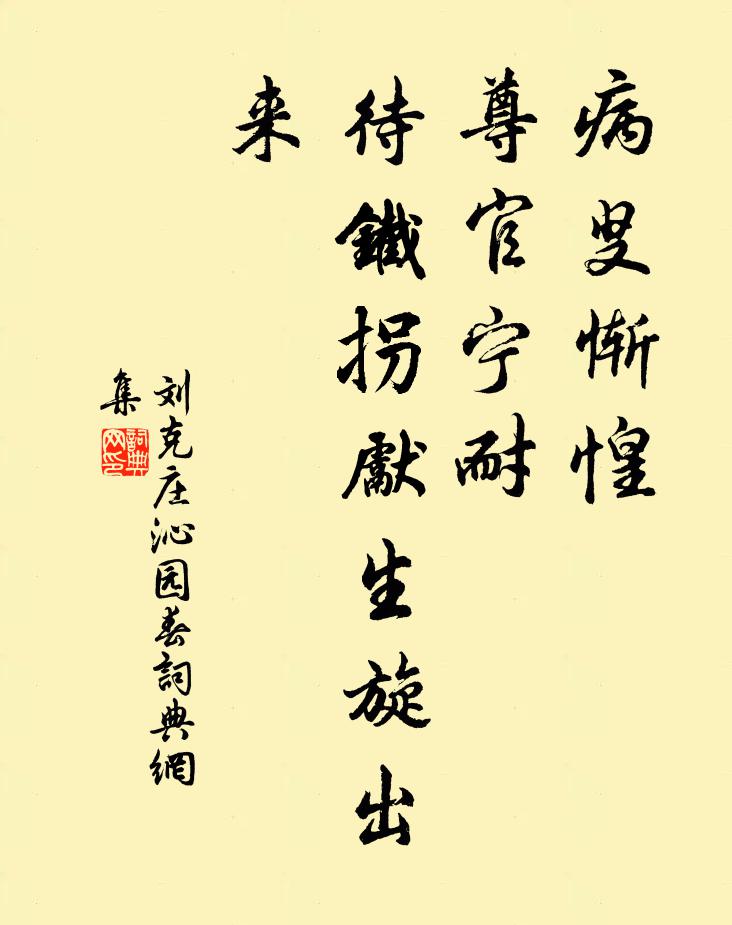 病叟惭惶
尊官宁耐
待鐵拐獻生旋出
来
刘克庄沁园春詞典網
集
詞典
网印